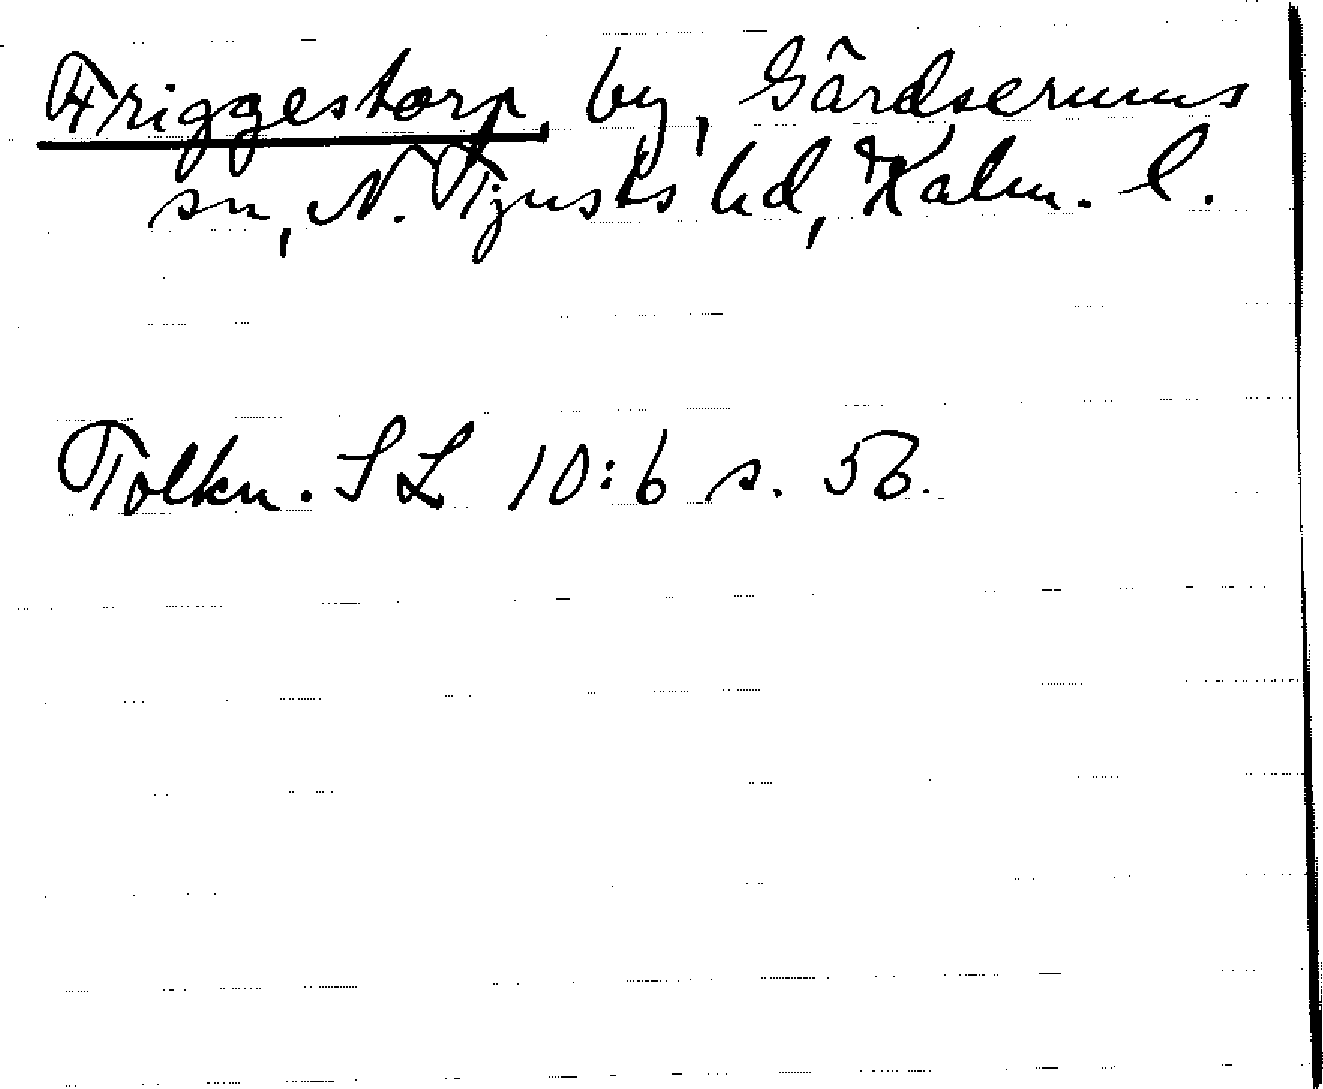 Friggestorp, by, Gårdserums
sn, N. Tjusts hd, Kalm. l.
Tolkn. SL 10:6 s. 56.